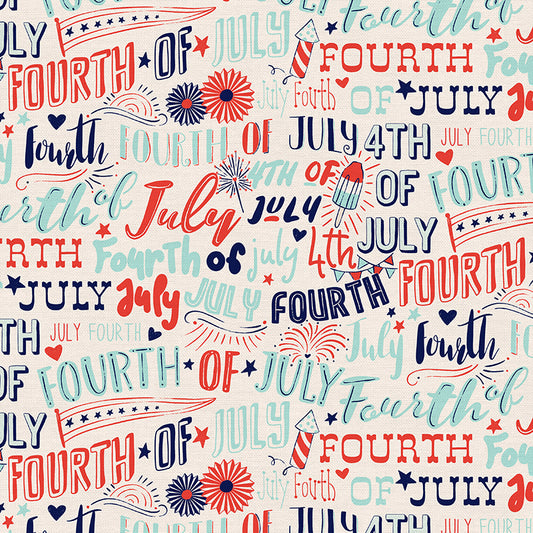 Fourth of
JULY FOURTH OF JULY FOURTH Fourth
July Fourth OF JULY July
Fourth FOURTH OF JULY 4TH JULY FOURTH
Fourth of July 4TH OF JULY OF FOURTH
FOURTH Fourth of july 4th JULY FOURTH
JULY July JULY FOURTH
JULY FOURTH July Fourth
OF FOURTH OF JULY Fourth of
JULY FOURTH OF JULY FOURTH Fourth
July Fourth OF JULY July
Fourth FOURTH OF JULY 4TH JULY FOURTH